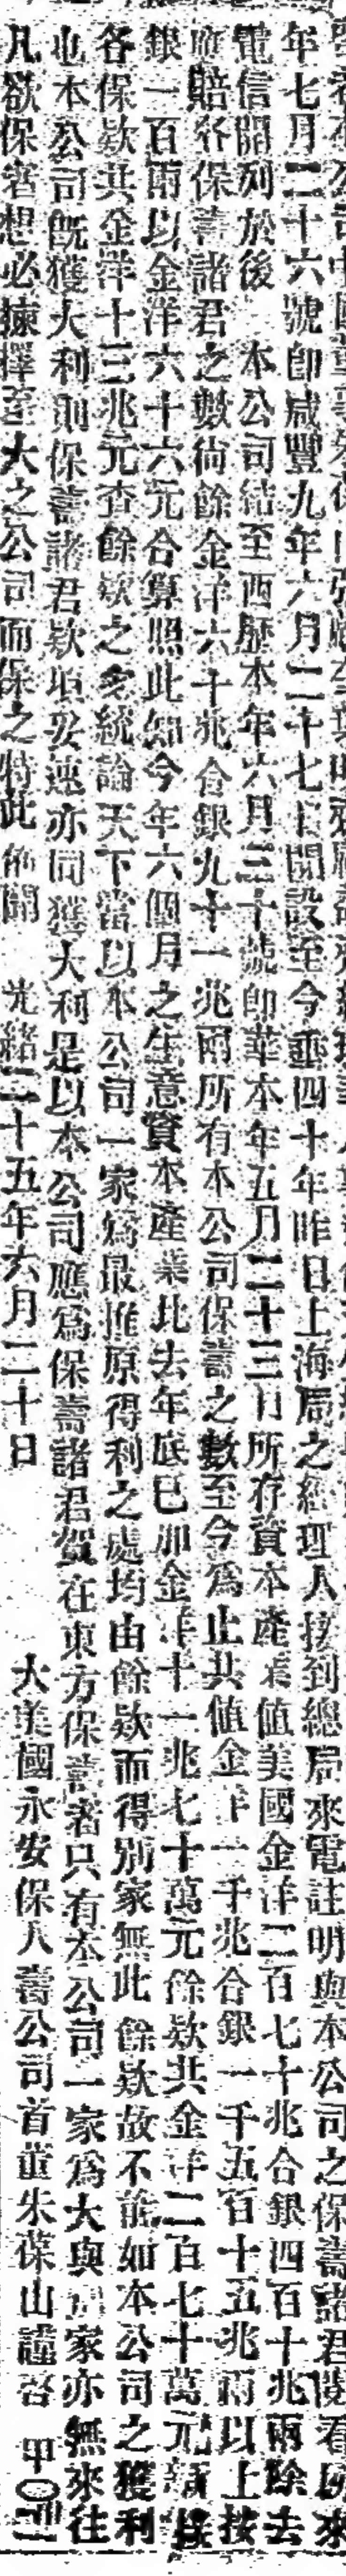 年七月二十六號卽咸豐九年六月二十七日開設至今垂四十年昨日上海局之經理人接到總局來電註明與本公司之保壽諸君優看以來
電信開列於後 本公司結至西歷本年六月三十號卽華本年五月二十三日所存資本產業值美國金洋二百七十兆合銀四百十兆兩除去
應賠各保壽諸君之數尙餘金洋六十兆合銀九十一兆兩所有本公司保壽之數至今爲止共値金洋一千兆合銀一千五百十五兆兩以上按
銀一百兩以金洋六十六元合算照此知今年六個月之生意資本產業比去年底已加金洋十一兆七十萬元餘欵共金洋二百七十萬元
各保欵共金洋十三兆元查餘欵之多統論天下當以本公司一家爲最推原得利之處均由餘欵而得別家無此餘欵故不能如本公司之獲利
也本公司旣獲大利則保壽諸君欵垢安速亦同獲大利是以本公司應爲保壽諸君賀在東方保壽者只有本公司一家爲大與別家亦無來往
凡欲保者想必揀擇至大之公司而保之特此佈聞 光緒二十五年六月二十日 大美國永安保人壽公司首董朱葆山謹啓